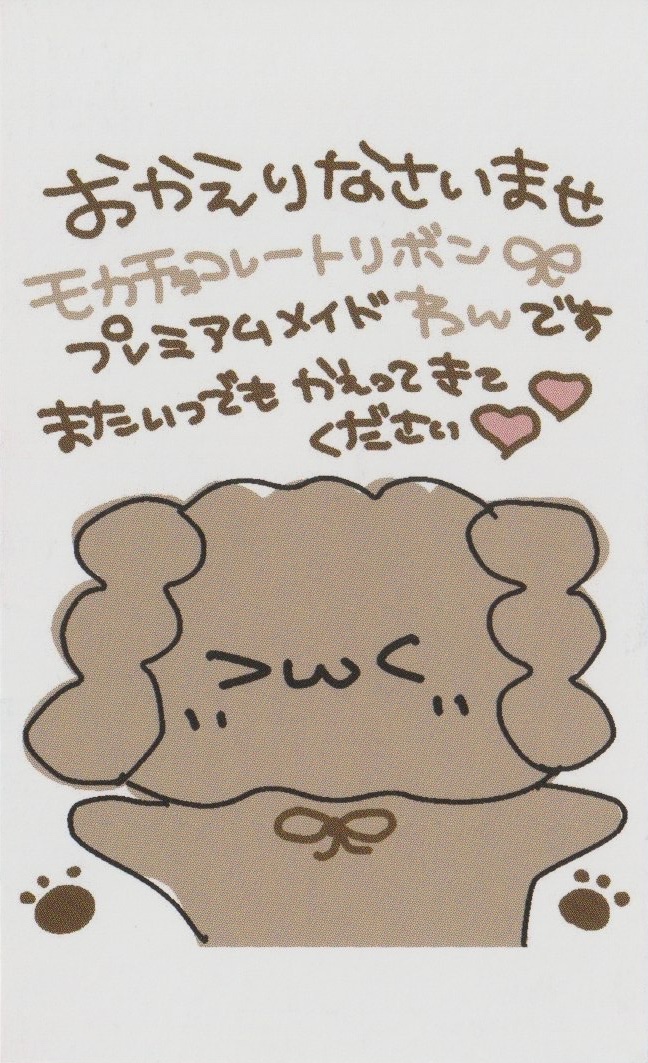 おかえりなさいませ
モカチョコレートリボン
プレミアムメイド わんです
またいつでも かえってきて
ください